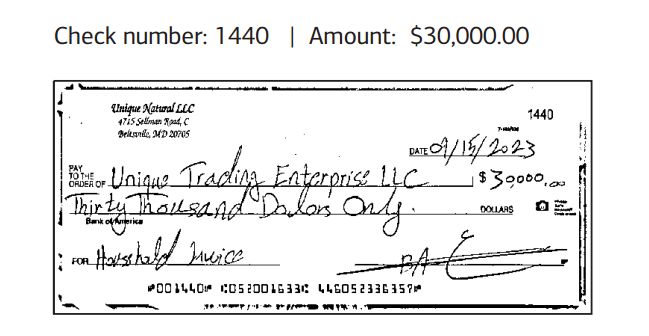 Check number: 1440 | Amount: $30,000.00
Unique Natural LLC
1440
4715 Sellman Road, C
Beltsville, MD 20705
DATE 09/15/2023
PAY TO THE ORDER OF Unique Trading Enterprise LLC $30000.00
Thirty Thousand Dolors Only. DOLLARS
Bank of America
FOR Household Invice
⑈001440⑈ ⑆052001633⑆ 446052336357⑈